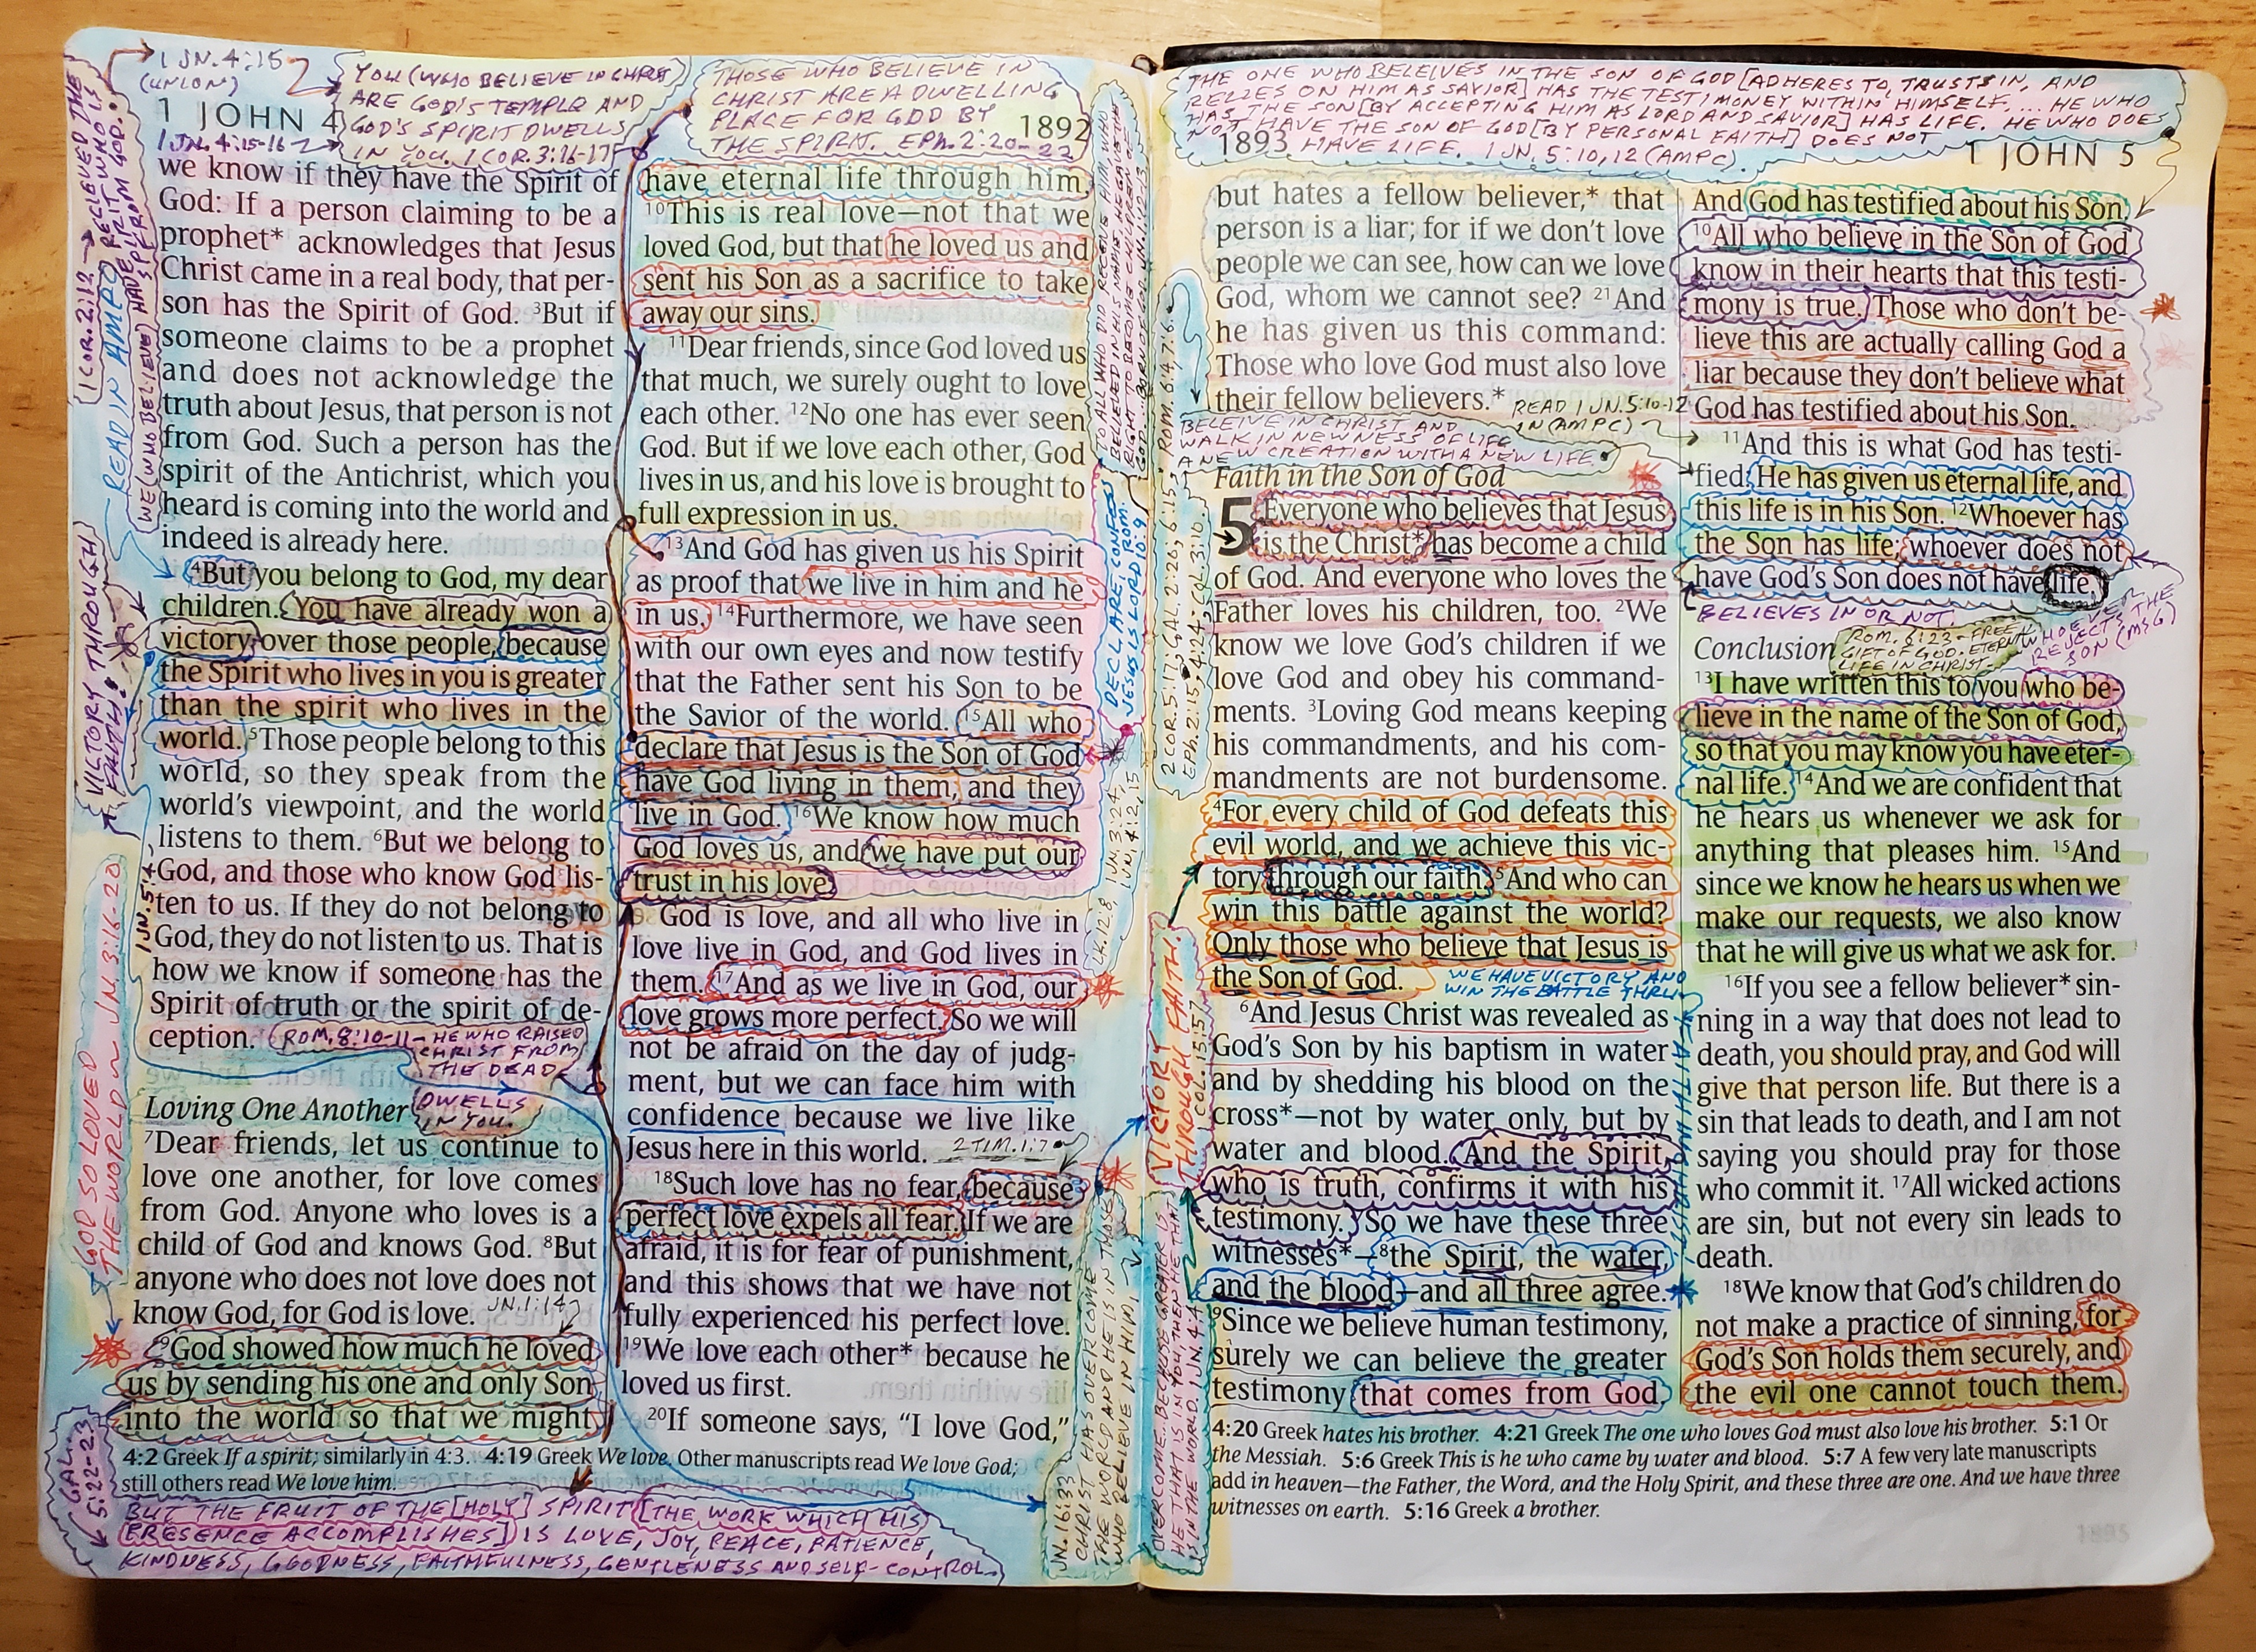 1 JN. 4:15
(UNION)
YOU (WHO BELIEVE IN CHRIST)
ARE GOD'S TEMPLE AND
GOD'S SPIRIT DWELLS
IN YOU. 1 COR. 3:16-17
THOSE WHO BELIEVE IN
CHRIST ARE A DWELLING
PLACE FOR GOD BY
THE SPIRIT. EPH. 2:20-22
1 JOHN 4
1892
1 JN. 4:15-16
1 COR. 2:12 → RECIEVED THE
SPIRIT WHO IS
FROM GOD.
READ IN AMPC
WE (WHO BELIEVE) HAVE
VICTORY THROUGH
FAITH!
1 JN. 5:4
GOD SO LOVED
THE WORLD JN. 3:16-20
we know if they have the Spirit of
God: If a person claiming to be a
prophet* acknowledges that Jesus
Christ came in a real body, that per-
son has the Spirit of God. 3But if
someone claims to be a prophet
and does not acknowledge the
truth about Jesus, that person is not
from God. Such a person has the
spirit of the Antichrist, which you
heard is coming into the world and
indeed is already here.
4But you belong to God, my dear
children. You have already won a
victory over those people, because
the Spirit who lives in you is greater
than the spirit who lives in the
world. 5Those people belong to this
world, so they speak from the
world's viewpoint, and the world
listens to them. 6But we belong to
God, and those who know God lis-
ten to us. If they do not belong to
God, they do not listen to us. That is
how we know if someone has the
Spirit of truth or the spirit of de-
ception.
ROM. 8:10-11 - HE WHO RAISED
CHRIST FROM
THE DEAD
DWELLS
IN YOU.
Loving One Another
7Dear friends, let us continue to
love one another, for love comes
from God. Anyone who loves is a
child of God and knows God. 8But
anyone who does not love does not
know God, for God is love.
JN. 1:14
9God showed how much he loved
us by sending his one and only Son
into the world so that we might
have eternal life through him.
10This is real love—not that we
loved God, but that he loved us and
sent his Son as a sacrifice to take
away our sins.
11Dear friends, since God loved us
that much, we surely ought to love
each other. 12No one has ever seen
God. But if we love each other, God
lives in us, and his love is brought to
full expression in us.
13And God has given us his Spirit
as proof that we live in him and he
in us. 14Furthermore, we have seen
with our own eyes and now testify
that the Father sent his Son to be
the Savior of the world. 15All who
declare that Jesus is the Son of God
have God living in them, and they
live in God. 16We know how much
God loves us, and we have put our
trust in his love.
God is love, and all who live in
love live in God, and God lives in
them. 17And as we live in God, our
love grows more perfect. So we will
not be afraid on the day of judg-
ment, but we can face him with
confidence because we live like
Jesus here in this world.
2 TIM. 1:7
18Such love has no fear, because
perfect love expels all fear. If we are
afraid, it is for fear of punishment,
and this shows that we have not
fully experienced his perfect love.
19We love each other* because he
loved us first.
20If someone says, “I love God,”
4:2 Greek If a spirit; similarly in 4:3. 4:19 Greek We love. Other manuscripts read We love God;
still others read We love him.
GAL.
5:22-23
BUT THE FRUIT OF THE [HOLY] SPIRIT [THE WORK WHICH HIS
PRESENCE ACCOMPLISHES] IS LOVE, JOY, PEACE, PATIENCE,
KINDNESS, GOODNESS, FAITHFULNESS, GENTLENESS AND SELF-CONTROL.
TO ALL WHO DID RECEIVE HIM, WHO
BELIEVED IN HIS NAME, HE GAVE THE
RIGHT TO BECOME CHILDREN OF
GOD
DECLARE, CONFESS
JESUS IS LORD ROM. 10:9
LK. 12:8, 1 JN. 3:24,
1 JN. 4:12, 15
JN. 16:33
CHRIST HAS OVERCOME
THE WORLD AND HE IS IN THOSE
WHO BELIEVE IN HIM
THE ONE WHO BELEIVES IN THE SON OF GOD [ADHERES TO, TRUSTS IN, AND
RELIES ON HIM AS SAVIOR] HAS THE TESTIMONEY WITHIN HIMSELF. ... HE WHO
HAS THE SON [BY ACCEPTING HIM AS LORD AND SAVIOR] HAS LIFE. HE WHO DOES
NOT HAVE THE SON OF GOD [BY PERSONAL FAITH] DOES NOT
HAVE LIFE. 1 JN. 5:10, 12 (AMPC).
1893
1 JOHN 5
but hates a fellow believer,* that
person is a liar; for if we don't love
people we can see, how can we love
God, whom we cannot see? 21And
he has given us this command:
Those who love God must also love
their fellow believers.*
READ 1 JN. 5:10-12
IN (AMPC)
BELEIVE IN CHRIST AND
WALK IN NEWNESS OF LIFE
A NEW CREATION WITH A NEW LIFE.
ROM. 6:4, 7:6
2 COR. 5:17; GAL. 2:20; 6:15;
EPH. 2:15, 4:24; COL. 3:10.
Faith in the Son of God
5 Everyone who believes that Jesus
is the Christ* has become a child
of God. And everyone who loves the
Father loves his children, too. 2We
know we love God's children if we
love God and obey his command-
ments. 3Loving God means keeping
his commandments, and his com-
mandments are not burdensome.
4For every child of God defeats this
evil world, and we achieve this vic-
tory through our faith. 5And who can
win this battle against the world?
Only those who believe that Jesus is
the Son of God.
WE HAVE VICTORY AND
WIN THE BATTLE THRU
FAITH IN
VICTORY
THROUGH FAITH.
1 COR. 15:57
OVERCOME.. BECAUSE GREATER IS
HE THAT IS IN YOU, THEN HE THAT
IS IN THE WORLD. 1 JN. 4:4
6And Jesus Christ was revealed as
God's Son by his baptism in water
and by shedding his blood on the
cross*—not by water only, but by
water and blood. And the Spirit,
who is truth, confirms it with his
testimony. So we have these three
witnesses*—8the Spirit, the water,
and the blood—and all three agree.
9Since we believe human testimony,
surely we can believe the greater
testimony that comes from God.
And God has testified about his Son.
10All who believe in the Son of God
know in their hearts that this testi-
mony is true. Those who don't be-
lieve this are actually calling God a
liar because they don't believe what
God has testified about his Son.
11And this is what God has testi-
fied: He has given us eternal life, and
this life is in his Son. 12Whoever has
the Son has life; whoever does not
have God's Son does not have life.
BELIEVES IN OR NOT.
WHOEVER
REJECTS THE
SON (MSG)
ROM. 6:23 - FREE
GIFT OF GOD. ETERNAL
LIFE IN CHRIST.
Conclusion
13I have written this to you who be-
lieve in the name of the Son of God,
so that you may know you have eter-
nal life. 14And we are confident that
he hears us whenever we ask for
anything that pleases him. 15And
since we know he hears us when we
make our requests, we also know
that he will give us what we ask for.
16If you see a fellow believer* sin-
ning in a way that does not lead to
death, you should pray, and God will
give that person life. But there is a
sin that leads to death, and I am not
saying you should pray for those
who commit it. 17All wicked actions
are sin, but not every sin leads to
death.
18We know that God's children do
not make a practice of sinning, for
God's Son holds them securely, and
the evil one cannot touch them.
4:20 Greek hates his brother. 4:21 Greek The one who loves God must also love his brother. 5:1 Or
the Messiah. 5:6 Greek This is he who came by water and blood. 5:7 A few very late manuscripts
add in heaven—the Father, the Word, and the Holy Spirit, and these three are one. And we have three
witnesses on earth. 5:16 Greek a brother.
1895